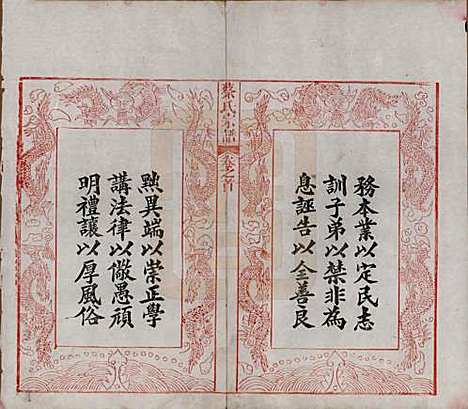 務本業以定民志
訓子弟以禁非為
息誣告以全善良
蔡氏宗譜
卷之首
黜異端以崇正學
講法律以儆愚頑
明禮讓以厚風俗